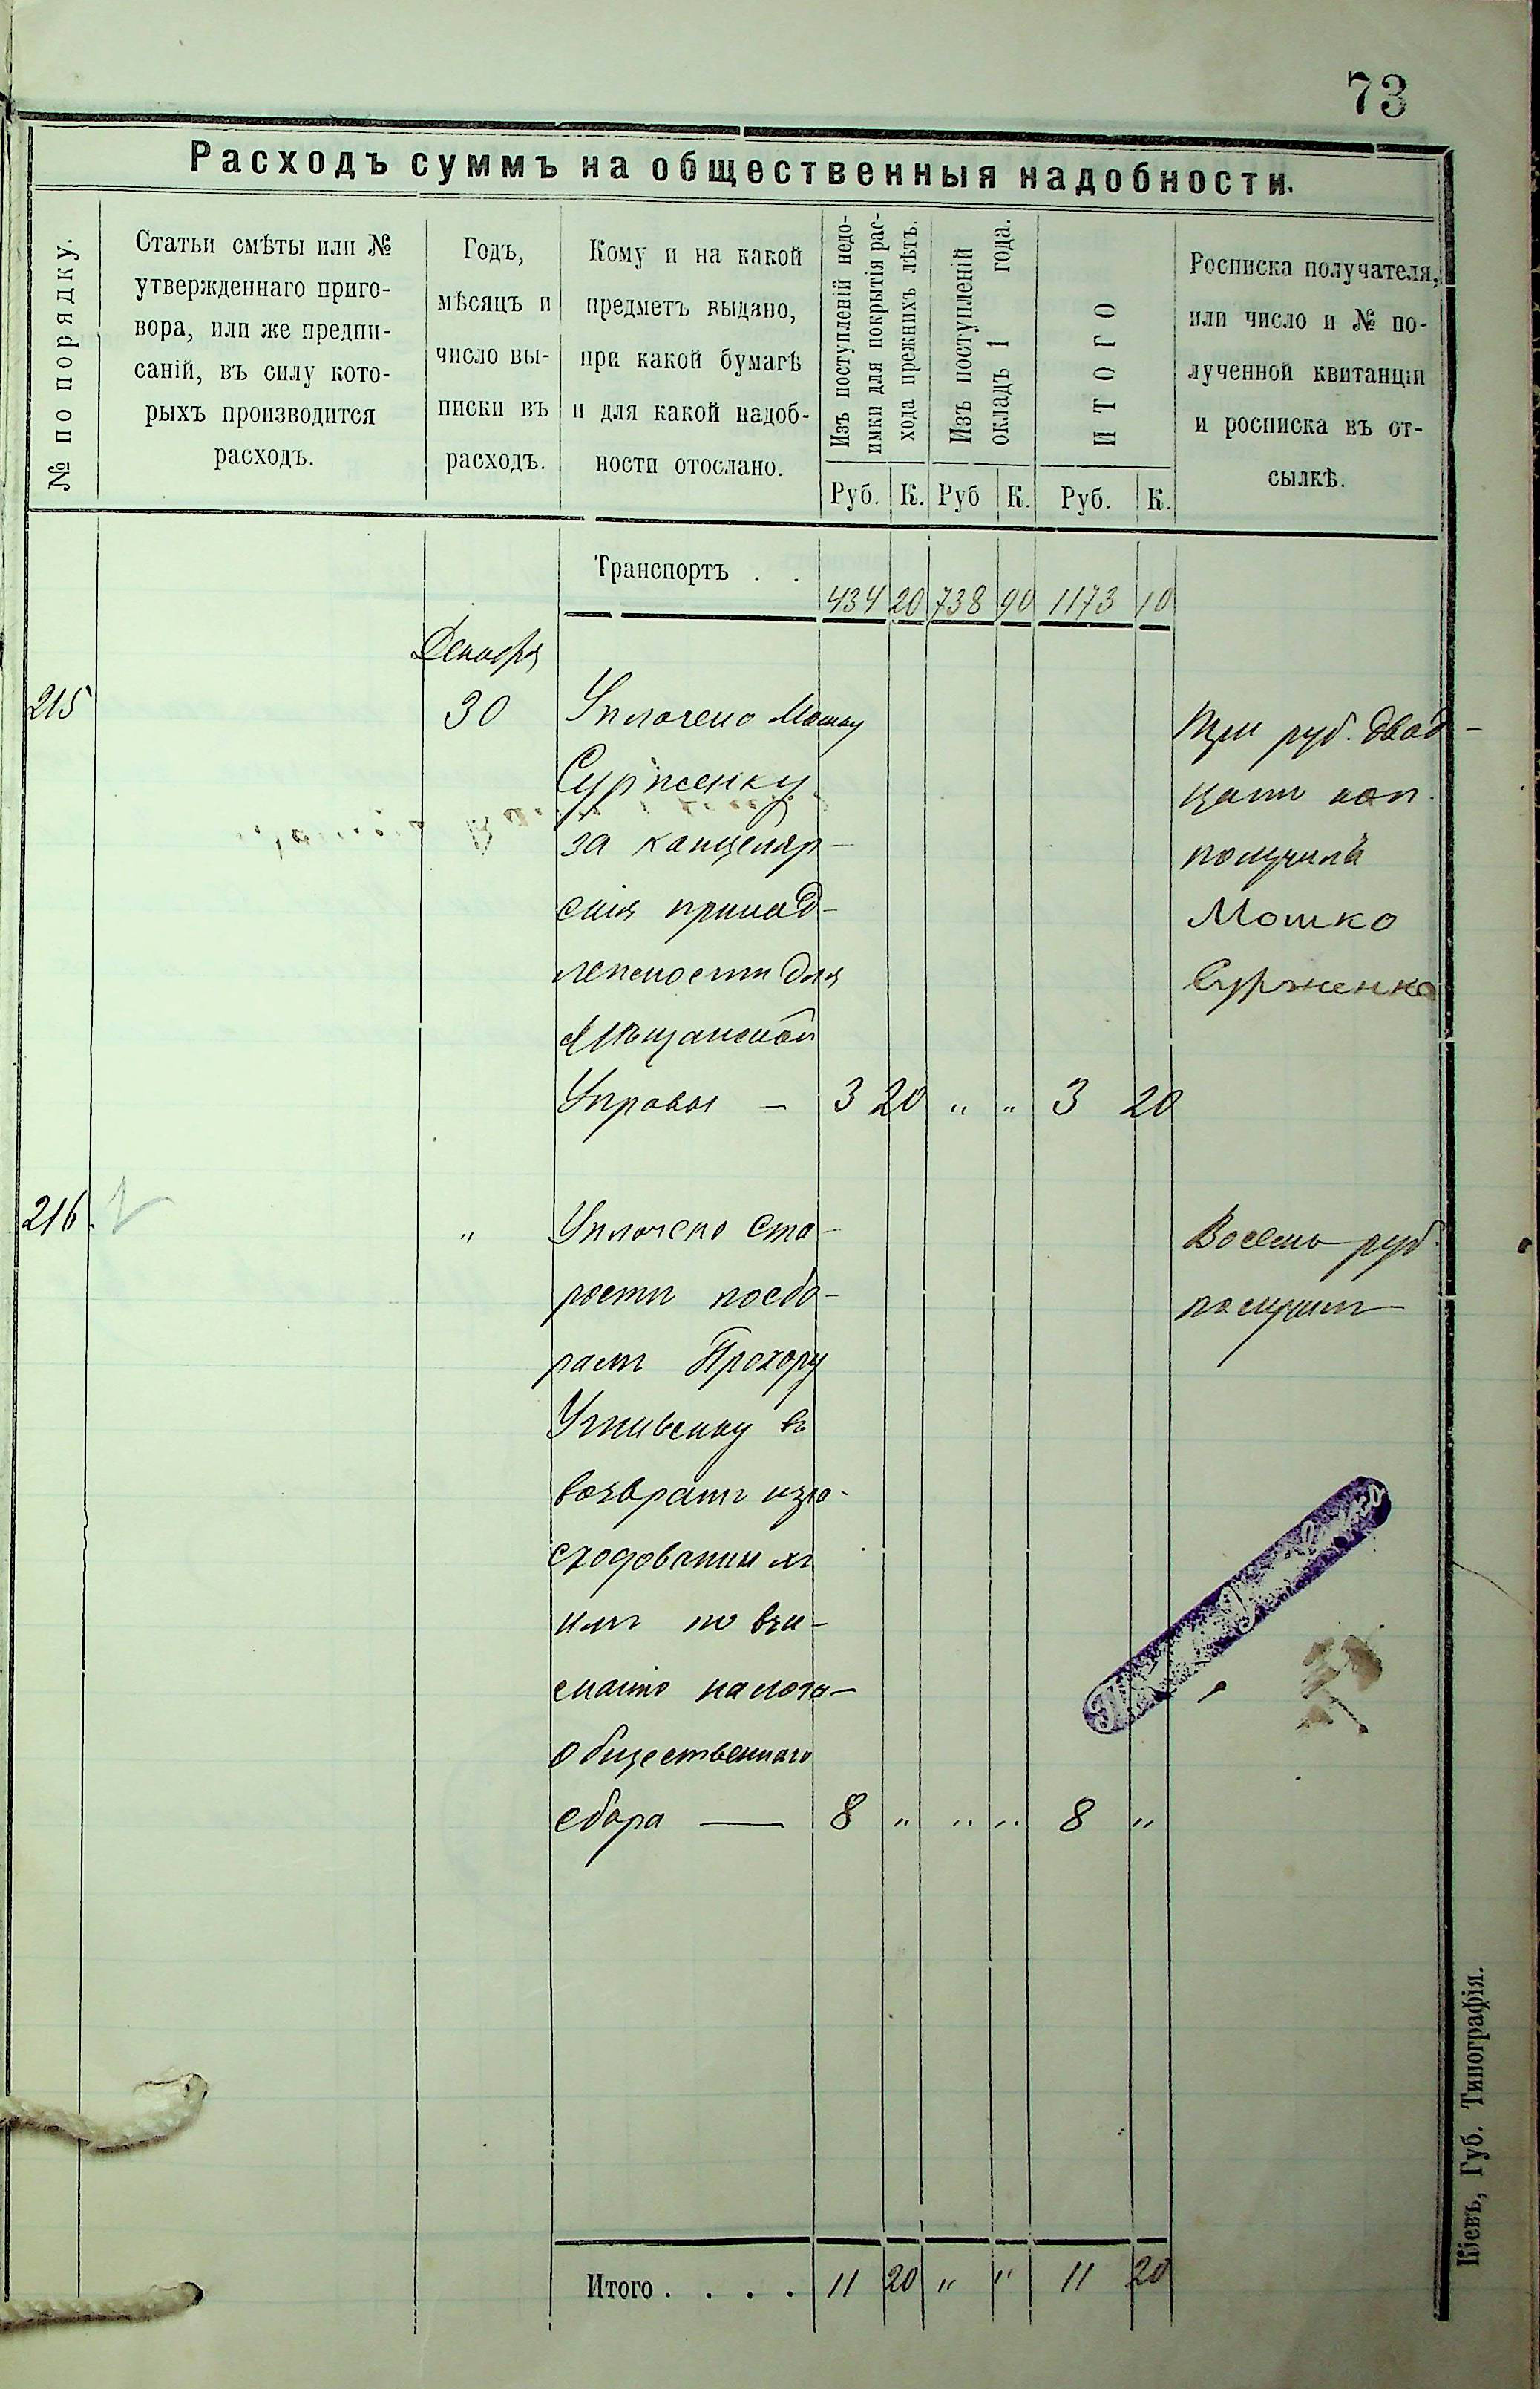 73
Расходъ суммъ на общественныя надобности.
№ по порядку.
Статьи смѣты или №
утвержденнаго приго-
вора, или же предпи-
саній, въ силу кото-
рыхъ производится
расходъ.
Годъ,
мѣсяцъ и
число вы-
писки въ
расходъ.
Кому и на какой
предметъ выдано,
при какой бумагѣ
и для какой надоб-
ности отослано.
Изъ поступленій недо-
имки для покрытія рас-
хода прежнихъ лѣтъ.
Изъ поступленій
окладъ 1 года.
ИТОГО
Росписка получателя,
или число и № по-
лученной квитанціи
и росписка въ от-
сылкѣ.
Руб. К. Руб К. Руб. К.
Транспортъ . . 434 20 738 90 1173 10
Декабря
215 30 Уплочено Мошку
Сурженку
за канцеляр-
скія принад-
лежности для
Мѣщанской
Управы — 3 20 " " 3 20
Три руб. двад-
цать коп.
получилъ
Мошко
Сурженко
216. " Уплочено Ста-
ростѣ по сбо-
рамъ Прохору
въ
возвратъ изра-
сходованныхъ
имъ по взи-
манію налога
общественнаго
сбора — 8 " " " 8 "
Восемь руб.
получилъ
Итого . . . . 11 20 " " 11 20
Кіевъ, Губ. Типографія.